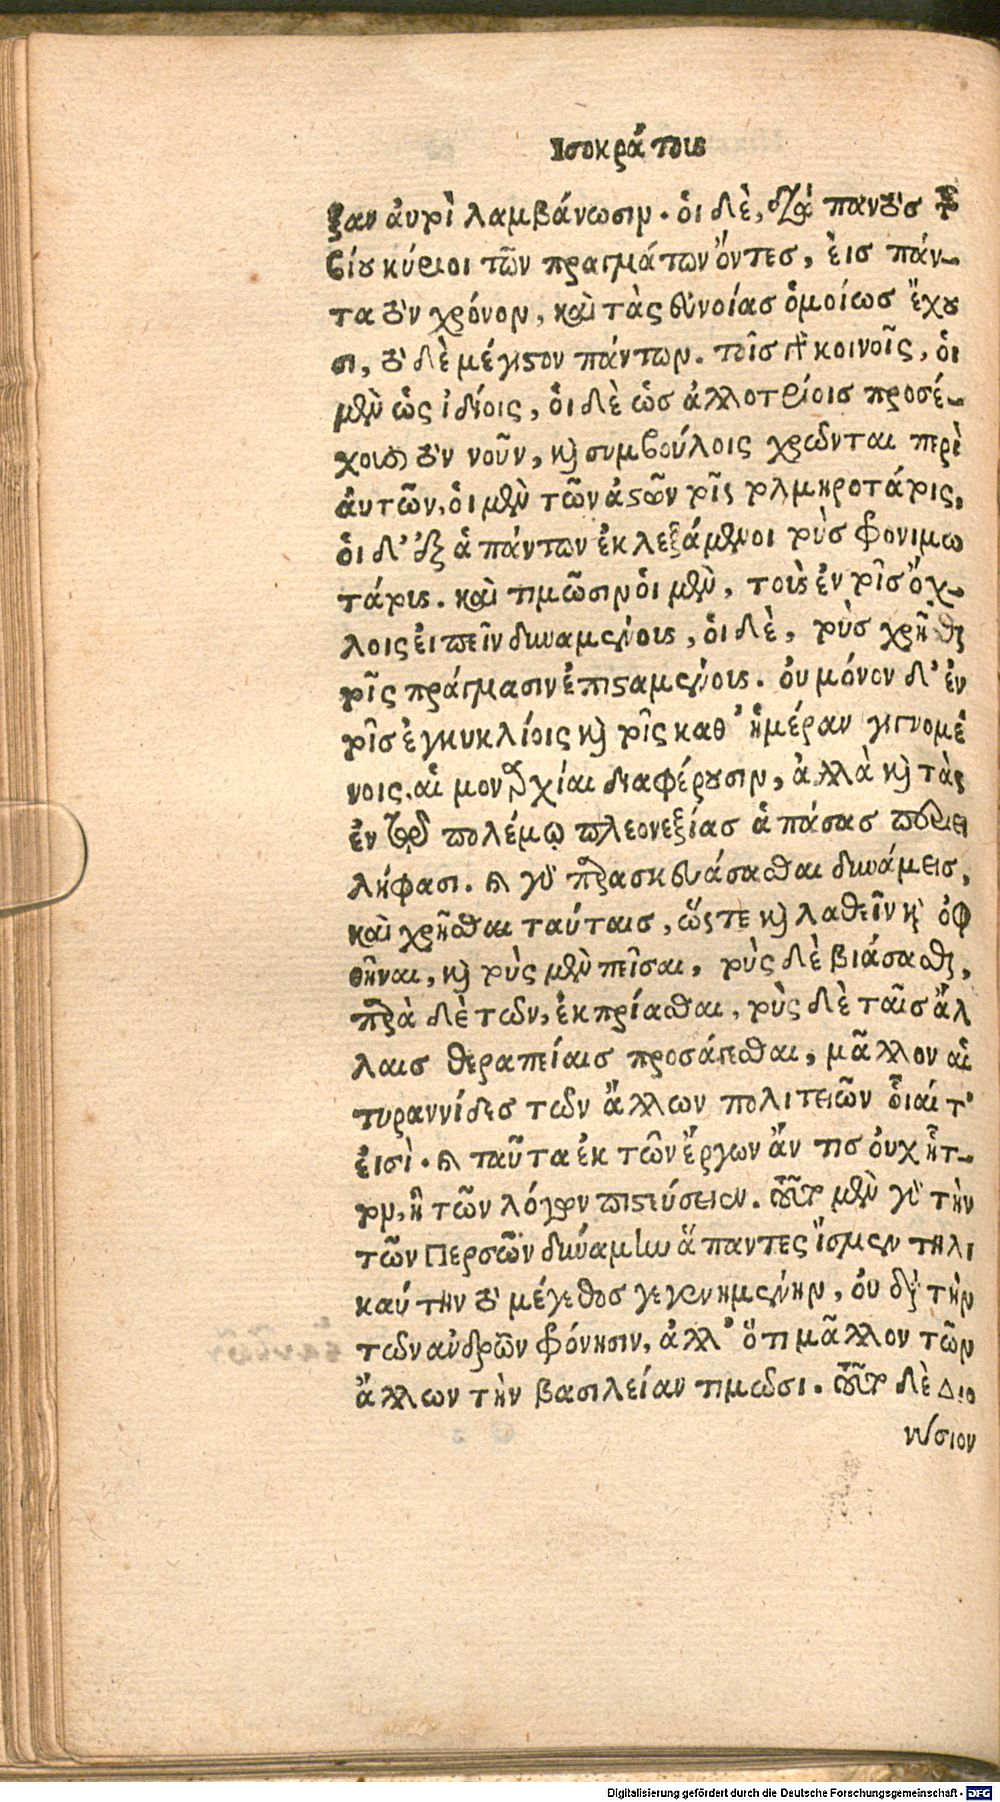 Ἰσοκράτους
ξαν αὐτοὶ λαμβάνωσιν. οἱ δὲ, διὰ παντὸς τοῦ
βίου κύριοι τῶν πραγμάτων ὄντες, εἰς πάν-
τα τὸν χρόνον, καὶ τὰς εὐνοίας ὁμοίως ἔχου
σι, τὸ δὲ μέγιστον πάντων. τοῖς γὰρ κοινοῖς, οἱ
μὲν ὡς ἰδίοις, οἱ δὲ ὡς ἀλλοτρίοις προσέ-
χουσι τὸν νοῦν, καὶ συμβούλοις χρῶνται περὶ
αὐτῶν, οἱ μὲν τῶν ἀστῶν τοῖς τολμηροτάτοις,
οἱ δ' ἐξ ἁπάντων ἐκλεξάμενοι τοὺς φρονιμω
τάτους. καὶ τιμῶσιν οἱ μὲν, τοὺς ἐν τοῖς ὄχ-
λοις εἰπεῖν δυναμένους, οἱ δὲ, τοὺς χρῆσθαι
τοῖς πράγμασιν ἐπισταμένους. οὐ μόνον δ' ἐν
τοῖς ἐγκυκλίοις καὶ τοῖς καθ' ἡμέραν γιγνομέ
νοις, αἱ μοναρχίαι διαφέρουσιν, ἀλλὰ καὶ τὰς
ἐν τῷ πολέμῳ πλεονεξίας ἁπάσας περιει
λήφασι. καὶ γὰρ παρασκευάσασθαι δυνάμεις,
καὶ χρῆσθαι ταύταις, ὥστε καὶ λαθεῖν καὶ ὀφ
θῆναι, καὶ τοὺς μὲν πεῖσαι, τοὺς δὲ βιάσασθαι,
παρὰ δὲ τῶν, ἐκπρίασθαι, τοὺς δὲ ταῖς ἄλ
λαις θεραπείαις προσάγεσθαι, μᾶλλον αἱ
τυραννίδες τῶν ἄλλων πολιτειῶν οἷαί τ'
εἰσὶ. καὶ ταῦτα ἐκ τῶν ἔργων ἄν τις οὐχ ἧτ-
τον, ἢ τῶν λόγων πιστεύσειεν. τοῦτο μὲν γὰρ τὴν
τῶν Περσῶν δύναμιν ἅπαντες ἴσμεν τηλι
καύτην τὸ μέγεθος γεγενημένην, οὐ διὰ τὴν
τῶν ἀνδρῶν φρόνησιν, ἀλλ' ὅτι μᾶλλον τῶν
ἄλλων τὴν βασιλείαν τιμῶσι. τοῦτο δὲ Διο
νύσιον
Digitalisierung gefördert durch die Deutsche Forschungsgemeinschaft - DFG